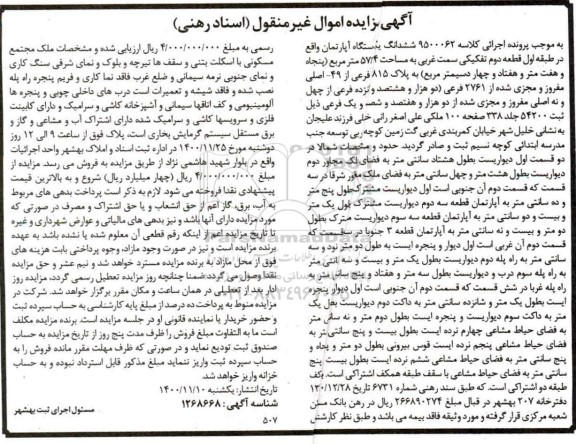 آگهی مزایده اموال غیر منقول (اسناد رهنی)
به موجب پرونده اجرائی کلاسه ۹۵۰۰۰۶۲ ششدانگ یکدستگاه آپارتمان واقع
در طبقه اول قطعه دوم تفکیکی سمت غربی به مساحت ۵۷/۴ متر مربع (پنجاه
و هفت متر و هفتاد و چهار دسیمتر مربع) به پلاک ۸۱۵ فرعی از ۴۹- اصلی
مفروز و مجزی شده از ۲۷۶۱ فرعی (دو هزار و هفتصد و
و نه اصلی مفروز و مجزی شده از دو هزار و هفتصد و شصت و یک فرعی ذیل
ثبت ۵۴۲۰۰ جلد ۳۳۸ صفحه ۱۰۰ ملکی علی اصغر رانی خلی فرزند علیجان
به نشانی خلیل شهر خیابان کمربندی غربی گت زمین کوچه ربی توسعه جنب
مدرسه ابتدائی کوچه نسیم ثبت و صادر گردید. حدود و مشخصات: شمالا در
دو قسمت اول دیواریست بطول هشتاد سانتی متر به فضای ملک مجاور دوم
دیواریست بطول هشت متر و چهل سانتی متر به فضای ملک مقر شرقا در سه
قسمت که قسمت دوم آن جنوبی است اول دیواریست مشترک بطول پنج متر
و ده سانتی متر به آپارتمان قطعه سه دوم دیواریست مشترک بطول یک متر
و بیست و دو سانتی متر به آپارتمان قطعه سه سوم دیواریست مشترک بطول
دو متر و بیست و نه سانتی متر به آپارتمان قطعه ۳ جنوبا در سه قسمت که
قسمت دوم آن غربی است اول دیوار و پنجره ایست به طول دو متر و نود و سه
سانتی متر به راه پله دوم دیواریست بطول یک متر و بیست و سه سانتی متر
به راه پله سوم درب و دیواریست بطول سه متر و هفتاد و پنج سانتی متر به
راه پله غربا در شش قسمت که قسمت دوم آن جنوبی است اول دیوار و پنجره
ایست بطول یک متر و شانزده سانتی متر به داکت دوم دیواریست بطول یک
متر به داکت سوم دیواریست و پنجره ایست بطول دو متر و نه سانتی متر
به فضای حیاط مشاعی چهارم نرده ایست بطول بیست و پنج سانتی متر به
فضای حیاط مشاعی پنجم نرده ایست قوس بیرونی بطول دو متر و پنجاه و
پنج سانتی متر به فضای حیاط مشاعی ششم نرده ایست بطول بیست و پنج
سانتی متر به فضای حیاط مشاعی با سقف طبقه همکف اشتراکی است. کف
طبقه دو اشتراکی است. که طبق سند رهنی شماره ۶۷۳۱ تاریخ
دفترخانه ۲۰۷ بهشهر در قبال مبلغ ۲۶۶۸۹۰۲۷۴ ریال در رهن بانک مسکن
شعبه مرکزی قرار گرفته و مورد وثیقه فاقد بیمه می باشد و طبق نظر کارشناس
رسمی به مبلغ ۴/۰۰۰/۰۰۰/۰۰۰ ریال ارزیابی شده و مشخصات ملک مجتمع
مسکونی با اسکلت بتنی و سقف ها تیرچه و بلوک و نمای شرقی سنگ کاری
و نمای جنوبی نرمه سیمانی و ضلع غرب فاقد نما کاری و فریم پنجره راه پله
نصب شده و فاقد شیشه و تعمیرات است درب های داخلی چوبی و پنجره ها
آلومینیومی و کف اتاقها سیمانی و آشپزخانه کاشی و سرامیک و دارای کابینت
فلزی و سرویسها کاشی و سرامیک شده دارای اشتراک آب و مشاعی و گاز و
برق مستقل سیستم گرمایش بخاری است، پلاک فوق از ساعت ۹ الی ۱۲ روز
دوشنبه مورخ ۱۴۰۰/۱۱/۲۵ در اداره ثبت اسناد و املاک بهشهر واحد اجرائیات
واقع در بلوار شهید هاشمی نژاد از طریق مزایده به فروش می رسد. مزایده از
مبلغ ۴/۰۰۰/۰۰۰/۰۰۰ ریال (چهار میلیارد ریال) شروع و به بالاترین قیمت
پیشنهادی نقدا فروخته می شود. لازم به ذکر است پرداخت بدهی های مربوط
به آب، برق، گاز اعم از حق انشعاب و یا حق اشتراک و مصرف در صورتی که
مورد مزایده دارای آنها باشد و نیز بدهی های مالیاتی و عوارض شهرداری و غیره
تا تاریخ مزایده اعم از اینکه رقم قطعی آن معلوم شده یا نشده باشد به عهده
برنده مزایده است و نیز در صورت وجود مازاد، وجوه پرداختی بابت هزینه های
فوق از محل مازاد به برنده مزایده مسترد خواهد شد و نیم عشر و حق مزایده
نقدا وصول می گردد ضمنا چنانچه روز مزایده تعطیل رسمی گردد، مزایده روز
اداری بعد از تعطیلی در همان ساعت و مکان مقرر برگزار خواهد شد. شرکت در
مزایده منوط به پرداخت ده درصد از مبلغ پایه کارشناسی به حساب سپرده ثبت
و حضور خریدار یا نماینده قانونی او در جلسه مزایده است. برنده مزایده مکلف
است ما به التفاوت مبلغ فروش را ظرف مدت پنج روز از تاریخ مزایده به حساب
صندوق ثبت تودیع نماید و در صورتی که ظرف مهلت مقرر مانده فروش را به
حساب سپرده ثبت واریز ننماید مبلغ مذکور قابل استرداد نبوده و به حساب
خزانه واریز خواهد شد.
تاریخ انتشار: یکشنبه ۱۴۰۰/۱۱/۱۰
شناسه آگهی: ۱۲۶۸۶۶۸
مسئول اجرای ثبت بهشهر
۵۰۷